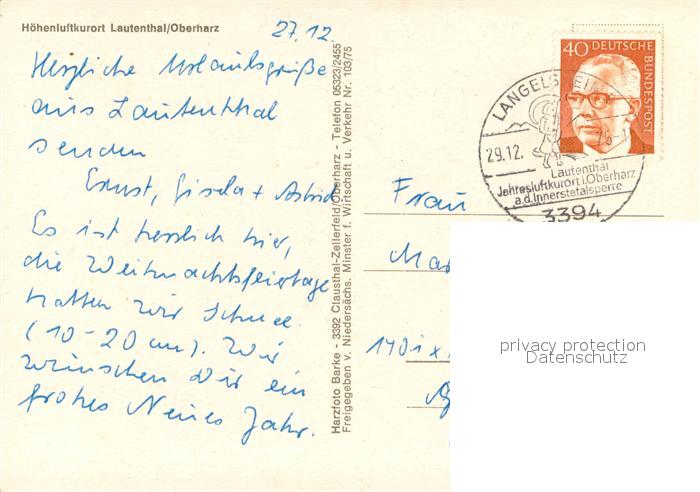 Höhenluftkurort Lautenthal/Oberharz
27.12.
Herzliche Urlaubsgrüße
aus Lautenthal
senden
Ernst, Gisela + Astrid
Es ist herrlich hier,
die Weihnachtsfeiertage
hatten wir Schnee
(10-20 cm). Wir
wünschen Dir ein
frohes Neues Jahr.
Harzfoto Barke - 3392 Clausthal-Zellerfeld/Oberharz - Telefon 05323/2455
Freigegeben v. Niedersächs. Minster f. Wirtschaft u. Verkehr Nr. 103/75
40 DEUTSCHE
BUNDESPOST
LANGELSHEIM
29.12.
Lautenthal
Jahresluftkurort i. Oberharz
a.d. Innerstetalsperre
3394
Frau
1401
privacy protection
Datenschutz